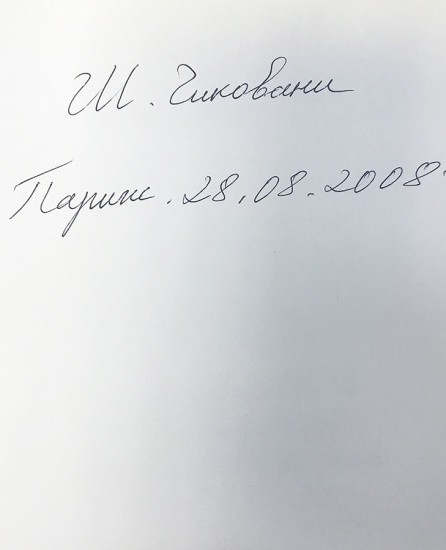 Ш. Чиковани
Париж. 28.08.2008